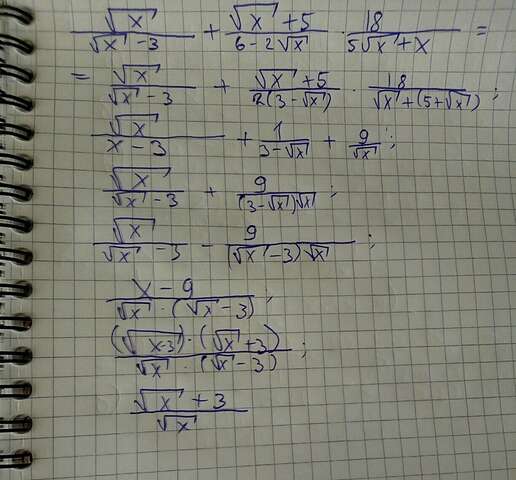 √x/(√x - 3) + (√x + 5)/(6 - 2√x) · 18/(5√x + x) =
= √x/(√x - 3) + (√x + 5)/(2(3 - √x)) · 18/(√x + (5 + √x));
√x/(x - 3) + 1/(3 - √x) + 9/√x;
√x/(√x - 3) + 9/((3 - √x)√x);
√x/(√x - 3) - 9/((√x - 3)√x);
(x - 9)/(√x · (√x - 3));
((√x-3) · (√x + 3))/(√x · (√x - 3));
(√x + 3)/√x